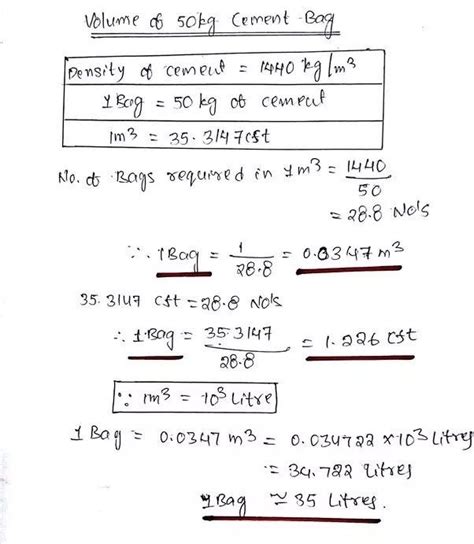 Volume of 50kg Cement Bag
Density of cement = 1440 kg/m³
1Bag = 50 kg of cement
1m³ = 35.3147 cft
No. of Bags required in 1m³ = 1440/50
= 28.8 No's
∵ 1Bag = 1/28.8 = 0.0347 m³
35.3147 cft = 28.8 No's
∴ 1Bag = 35.3147/28.8 = 1.226 cft
∵ 1m³ = 10³ Litre
1 Bag = 0.0347 m³ = 0.034722 × 10³ Litres
= 34.722 Litres
1Bag ≃ 35 Litres.